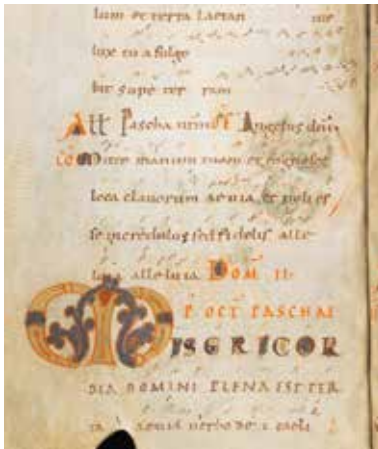 lum et terra laetan tur
lux tua fulge
bit super
Att Pascha nrm Angelus dni
CO Mitte manum tuam et cognosce
loca clavorum aevia et noli es
se incredulus sed fidelis alle
luia alleluia DOM II
P OCT PASCHAE
MISERICOR
DIA DOMINI PLENA EST TER
RA AEVIA verbo dei caeli